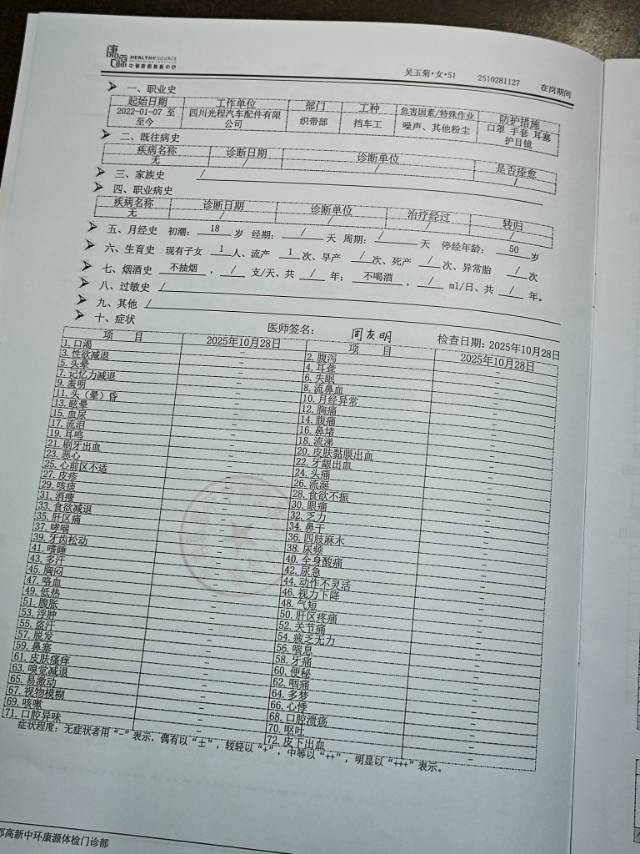 康源 HEALTHY SOURCE
吴玉菊·女·51 2510281127 在岗期间
一、职业史
起始日期 工作单位 部门 工种 危害因素/特殊作业 防护措施
2022-01-07 至至今 四川光程汽车配件有限公司 织带部 挡车工 噪声、其他粉尘 口罩 手套 耳塞 护目镜
二、既往病史
疾病名称 诊断日期 诊断单位 是否痊愈
无 / / /
三、家族史 /
四、职业病史
疾病名称 诊断日期 诊断单位 治疗经过 转归
无 / / / /
五、月经史 初潮: 18 岁 经期: / 天 周期: / 天 停经年龄: 50 岁
六、生育史 现有子女 1 人、流产 1 次、早产 / 次、死产 / 次、异常胎 / 次
七、烟酒史 不抽烟 , / 支/天、共 / 年; 不喝酒 , / ml/日、共 / 年。
八、过敏史 /
九、其他 /
十、症状 医师签名: 检查日期: 2025年10月28日
项 目 2025年10月28日 项 目 2025年10月28日
1.口渴 - 2.腹泻 -
3.性欲减退 - 4.耳聋 -
5.头晕 - 6.失眠 -
7.记忆力减退 - 8.流鼻血 -
9.羞明 - 10.月经异常 -
11.头（晕）昏 - 12.胸痛 -
13.眩晕 - 14.腹痛 -
15.血尿 - 16.鼻堵 -
17.流泪 - 18.流涕 -
19.耳鸣 - 20.皮肤黏膜出血 -
21.刷牙出血 - 22.牙龈出血 -
23.恶心 - 24.头痛 -
25.心前区不适 - 26.流涎 -
27.皮疹 - 28.食欲不振 -
29.咳痰 - 30.眼痛 -
31.消瘦 - 32.乏力 -
33.食欲减退 - 34.鼻干 -
35.肝区痛 - 36.四肢麻木 -
37.哮喘 - 38.尿频 -
39.牙齿松动 - 40.全身酸痛 -
41.嗜睡 - 42.尿急 -
43.多汗 - 44.动作不灵活 -
45.胸闷 - 46.视力下降 -
47.咯血 - 48.气短 -
49.低热 - 50.肝区疼痛 -
51.腹胀 - 52.关节痛 -
53.浮肿 - 54.疲乏无力 -
55.盗汗 - 56.喘息 -
57.脱发 - 58.牙痛 -
59.鼻塞 - 60.便秘 -
61.皮肤瘙痒 - 62.咽痛 -
63.嗅觉减退 - 64.多梦 -
65.易激动 - 66.心悸 -
67.视物模糊 - 68.口腔溃疡 -
69.咳嗽 - 70.呕吐 -
71.口腔异味 - 72.皮下出血 -
症状程度: 无症状者用"-"表示，偶有以"±"，较轻以"+"，中等以"++"，明显以"+++"表示。
高新中环康源体检门诊部